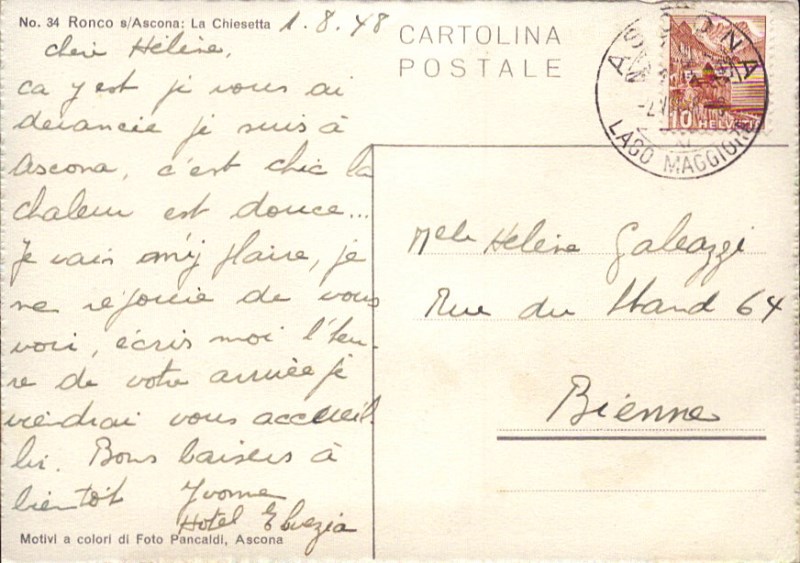 No. 34 Ronco s/Ascona: La Chiesetta 1.8.48
chère Hélène,
ca y est je vous ai
devancée je suis à
Ascona, c'est chic la
chaleur est douce...
Je vais m'y plaire, je
me réjouie de vous
voir, écris moi l'heu-
re de votre arrivée je
viendrai vous accueil-
lir. Bons baisers à
bientôt Yvonne
Hotel
Motivi a colori di Foto Pancaldi, Ascona
CARTOLINA
POSTALE
ASCONA
LAGO MAGGIORE
10 HELVETIA
Melle Hélène Galeazzi
Rue du Stand 64
Bienne